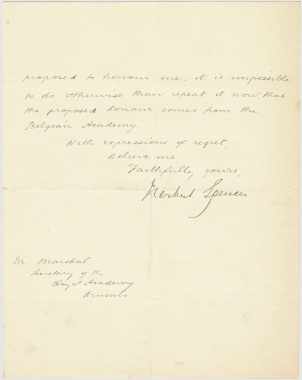 proposed to honour me, it is impossible
to do otherwise than repeat it now that
the proposed honour comes from the
Belgian Academy.
With expressions of regret,
Believe me
Faithfully yours,
Herbert Spencer
M. Marshal
Secretary of the
Royal Academy
Brussels